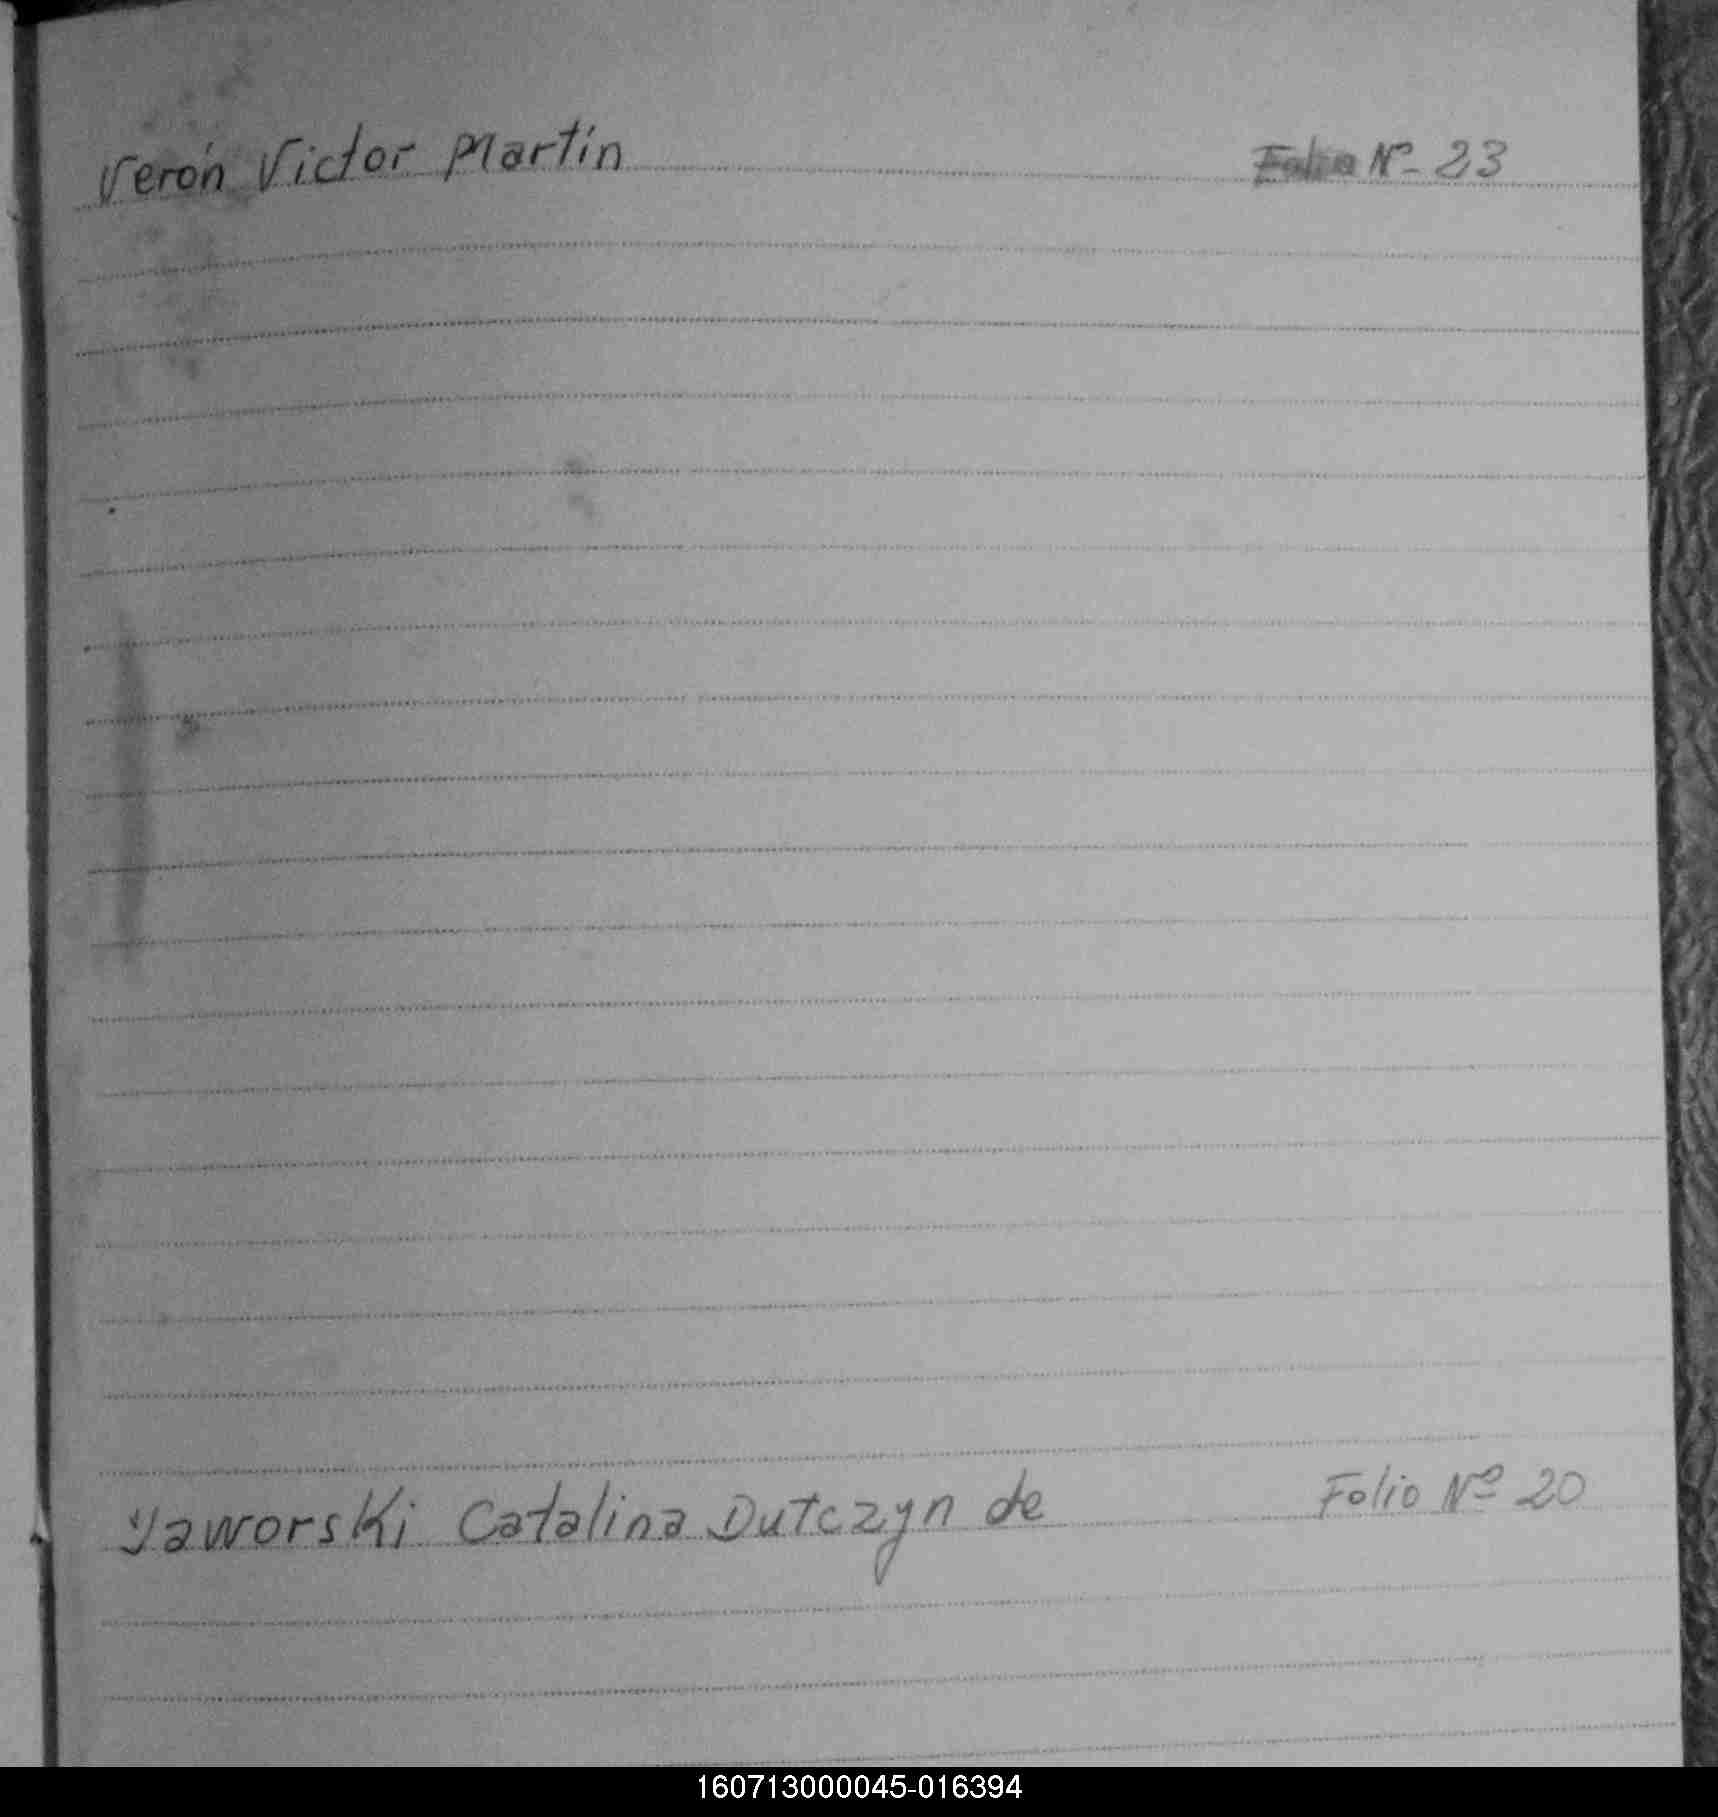 Verón Victor Martín Folio Nº 23
Yaworski Catalina Dutczyn de Folio Nº 20
160713000045-016394